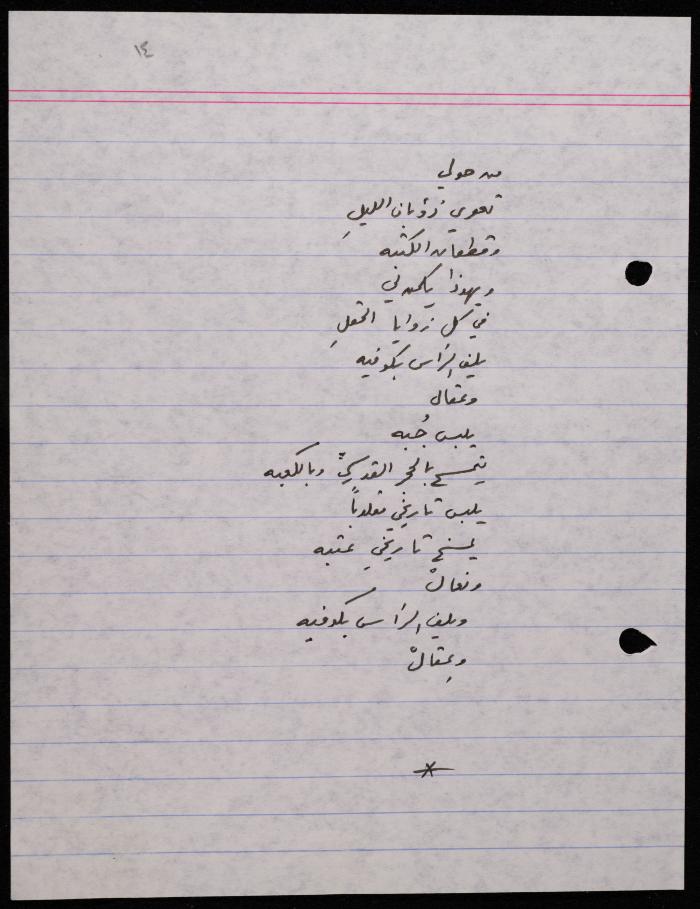 ١٤
من حولي
تعوي ذؤبان الليلِ
وقطعان الكتبه
ويهوذا يكمن لي
في كل زوايا الحقلِ
يلف الرأس بكوفيه
وعقال
يلبس جُبه
يتمسح بالحجر القدسيِّ وبالكعبه
يلبس تاريخي مقلوباً
يمسخ تاريخي عتبه
ونعالْ
ويلف الرأس بكوفيه
وعِقالْ
*